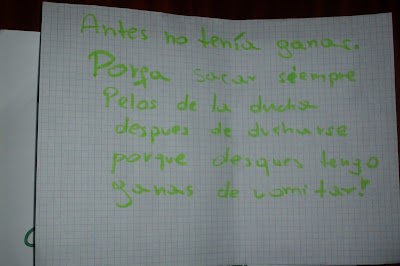 Antes no tenía ganas.
Porfa sacar siempre
Pelos de la ducha
despues de duchurse
porque desques tengo
ganas de vomitar!